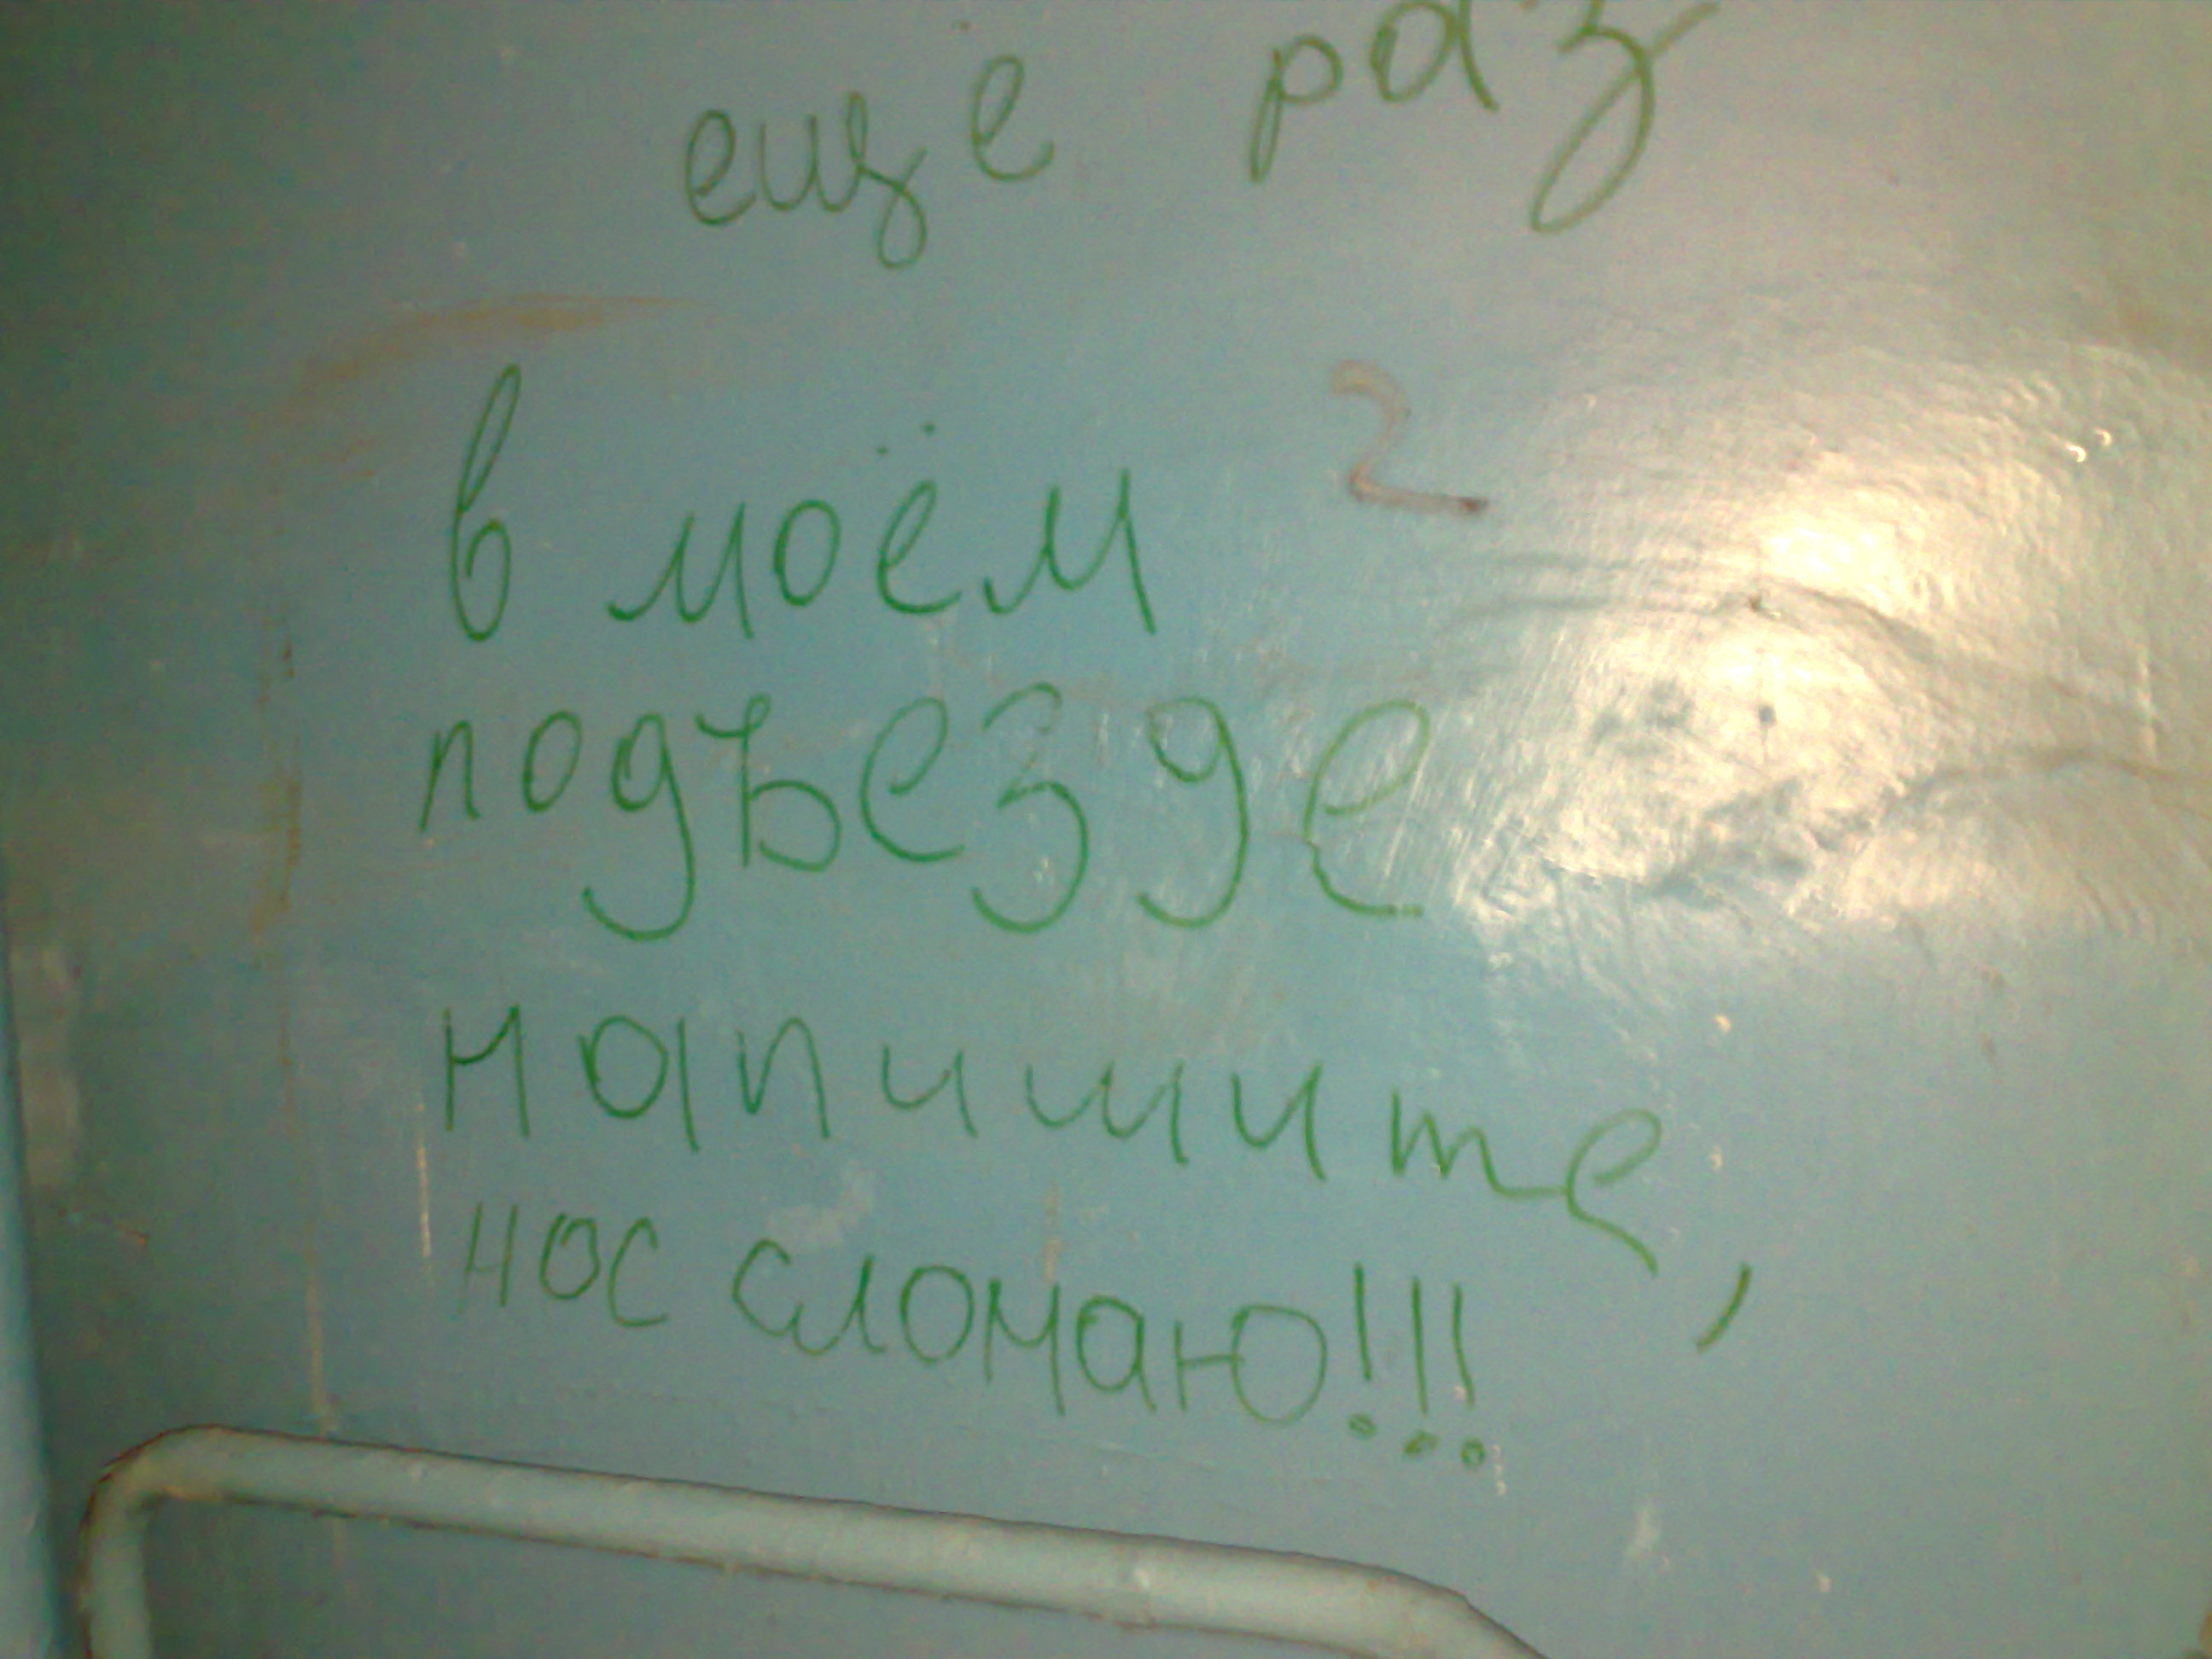 еще раз
2
в моём
подъезде
напишите,
нос сломаю!!!